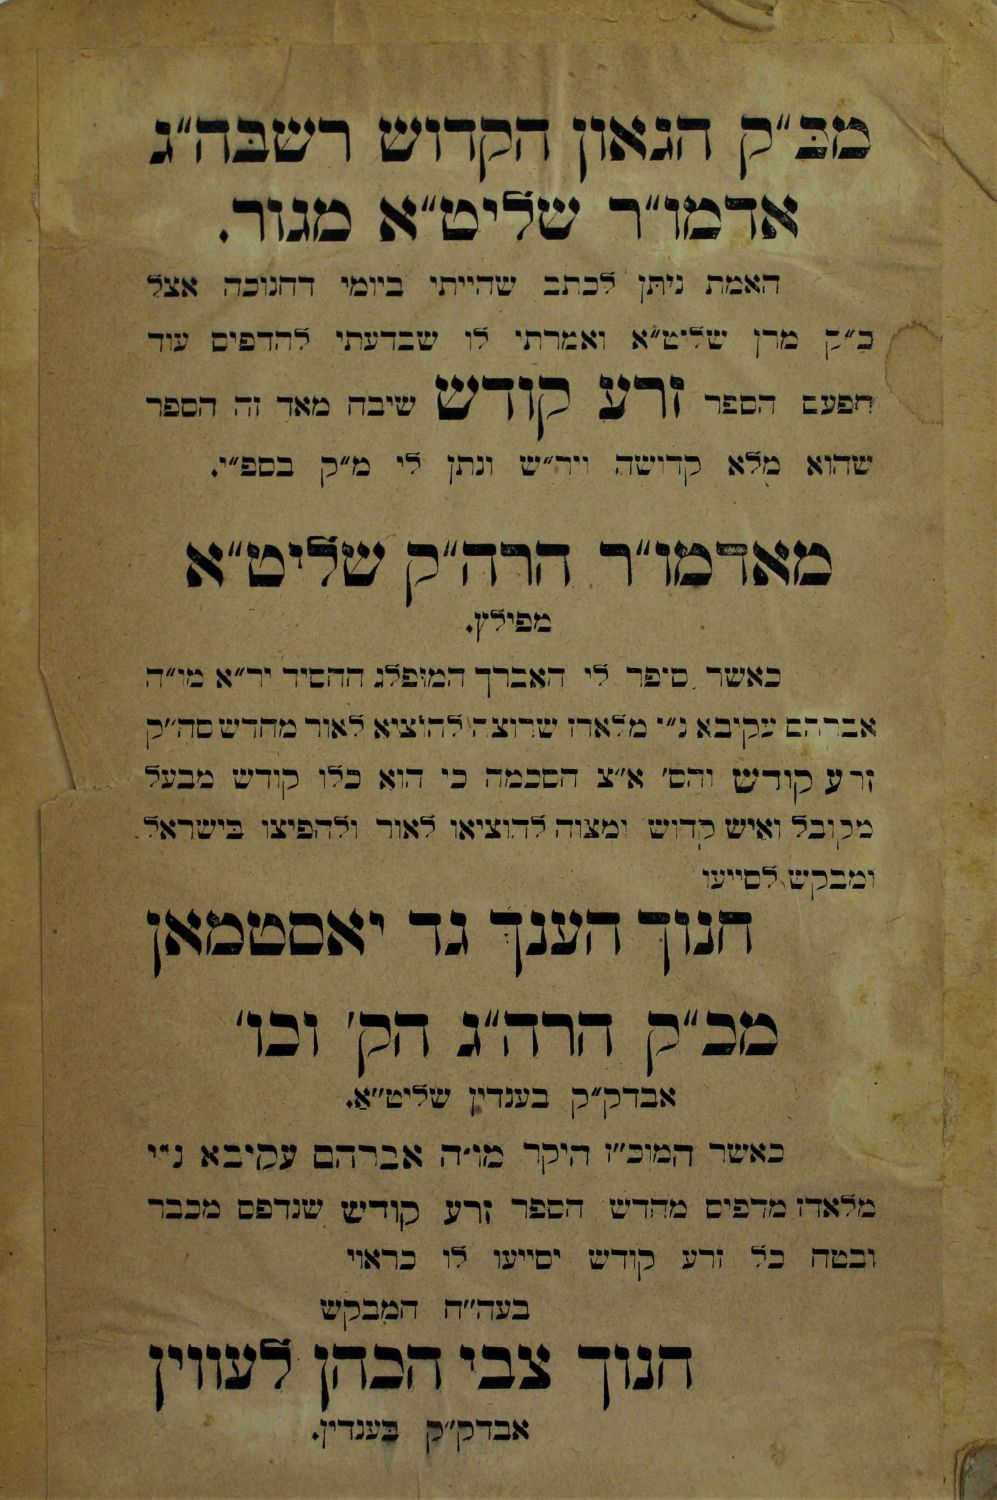 מכ״ק הגאון הקדוש רשבה״ג
אדמו״ר שליט״א מגור.
האמת ניתן לכתב שהייתי ביומי דחנוכה אצל
כ״ק מרן שליט״א ואמרתי לו שבדעתי להדפיס עוד
הפעם הספר זרע קודש שיבח מאד זה הספר
שהוא מלא קדושה ויר״ש ונתן לי מ״ק בספ״י.
מאדמו״ר הרה״ק שליט״א
מפילץ.
כאשר סיפר לי האברך המופלג החסיד יר״א מו״ה
אברהם עקיבא נ״י מלאדז שרוצה להוציא לאור מחדש סה״ק
זרע קודש והס׳ א״צ הסכמה כי הוא כלו קודש מבעל
מקובל ואיש קדוש ומצוה להוציאו לאור ולהפיצו בישראל
ומבקש לסייעו
חנוך הענך גד יאסטמאן
מכ״ק הרה״ג הק׳ וכו׳
אבדק״ק בענדין שליט״א.
כאשר המוכ״ז היקר מו״ה אברהם עקיבא נ״י
מלאדז מדפיס מחדש הספר זרע קודש שנדפס מכבר
ובטח כל זרע קודש יסייעו לו כראוי
בעה״ח המבקש
חנוך צבי הכהן לעווין
אבדק״ק בענדין.